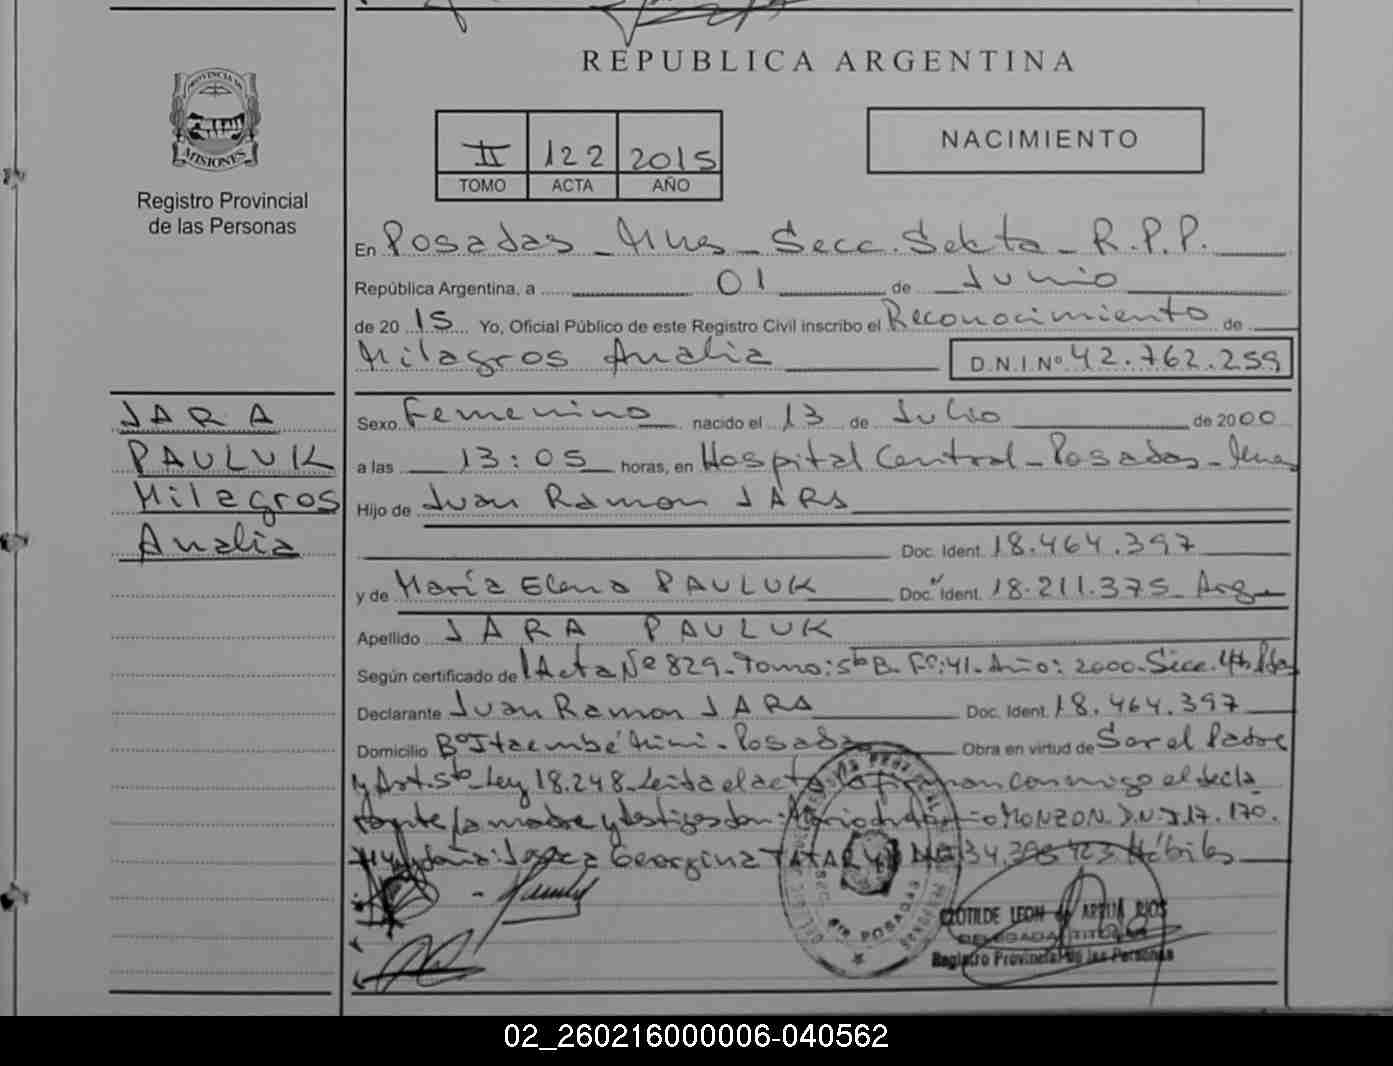 REPUBLICA ARGENTINA
PROVINCIA DE
MISIONES
Registro Provincial
de las Personas
II 122 2015
TOMO ACTA AÑO
NACIMIENTO
En Posadas - Mnes - Secc. Sexta - R.P.P.
República Argentina, a 01 de Junio
de 2015 Yo, Oficial Público de este Registro Civil inscribo el Reconocimiento de
Milagros Analia D.N.I Nº 42.762.259
JARA
PAULUK
Milagros
Analia
Sexo Femenino nacido el 13 de Julio de 2000
a las 13:05 horas, en Hospital Central - Posadas - Mnes
Hijo de Juan Ramon JARA
Doc. Ident. 18.464.397
y de María Elena PAULUK Doc. Ident. 18.211.375 - Arg
Apellido JARA PAULUK
Según certificado de Acta Nº 829 - Tomo: 5to B - Fº: 41 - Año: 2000 - Secc. 4ta Pdas
Declarante Juan Ramon JARA Doc. Ident. 18.464.397
Domicilio Bº Itaembé Mini - Posadas Obra en virtud de Ser el Padre
y Art. 5to Ley 18.248 - Leida el acta la firman conmigo el decla
rante, la madre y testigos don: MONZON D.N.I 17.170.
Georgina 34.395.423 Hábiles
POSADAS
CLOTILDE LEON de ARRUA RIOS
DELEGADA TITULAR
Registro Provincial de las Personas
02_260216000006-040562